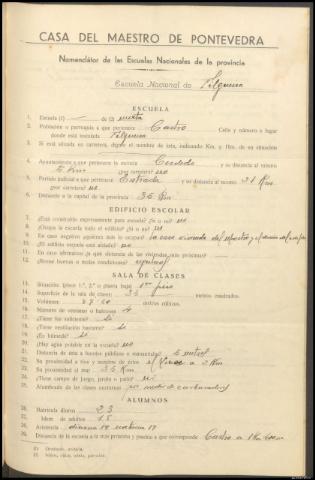 CASA DEL MAESTRO DE PONTEVEDRA
Nomenclátor de las Escuelas Nacionales de la provincia
Escuela Nacional de Filgueira
ESCUELA
1. Escuela (1) — de (2) mixta
2. Población o parroquia a que pertenece Castro Calle y número o lugar
donde está instalada Filgueira
3. Si está situada en carretera, dígase el nombre de ésta, indicando Km. y Hm. de su situación
4. Ayuntamiento a que pertenece la escuela Cerdedo y su distancia al mismo
5 Km. ¿por carretera? no
5. Partido judicial a que pertenece Estrada y su distancia al mismo 31 Km.
¿por carretera? no
6. Distancia a la capital de la provincia 36 Km
EDIFICIO ESCOLAR
7. ¿Está construído expresamente para escuela? (sí o no) no
8. ¿Ocupa la escuela todo el edificio? (sí o no) no
9. En caso negativo explicará qué lo ocupa la casa vivienda del Maestro y
10. ¿El edificio escuela está aislado? no
11. En caso afirmativo ¿a qué distancia de las viviendas más próximas?
12. ¿Reúne buenas o malas condiciones?
SALA DE CLASES
13. Situación (pisos 1.º, 2.º o planta baja) 1er piso
14. Superficie de la sala de clases 36 metros cuadrados.
15. Volúmen metros cúbicos.
16. Número de ventanas o balcones 4
17. ¿Tiene luz suficiente? si
18. ¿Tiene ventilación bastante? si
19. ¿Es húmeda? si
20. ¿Hay agua potable en la escuela? no
21. Distancia de ésta a fuentes públicas o manantiales metros
22. Su proximidad a ríos y nombre de éstos a 2 Km
23. Su proximidad al mar 36 Km
24. ¿Tiene campo de juego, jardín o patio?
25. Alumbrado de las clases nocturnas
ALUMNOS
26. Matrícula diurna 23
27. Idem de adultos 18
28. Asistencia diurna 19 nocturna 17
29. Distancia de la escuela a la más próxima y pueblo a que corresponde Castro a 1 Km
(1) Unitaria, mixta.
(2) Niños, niñas, mixta, párvulos.